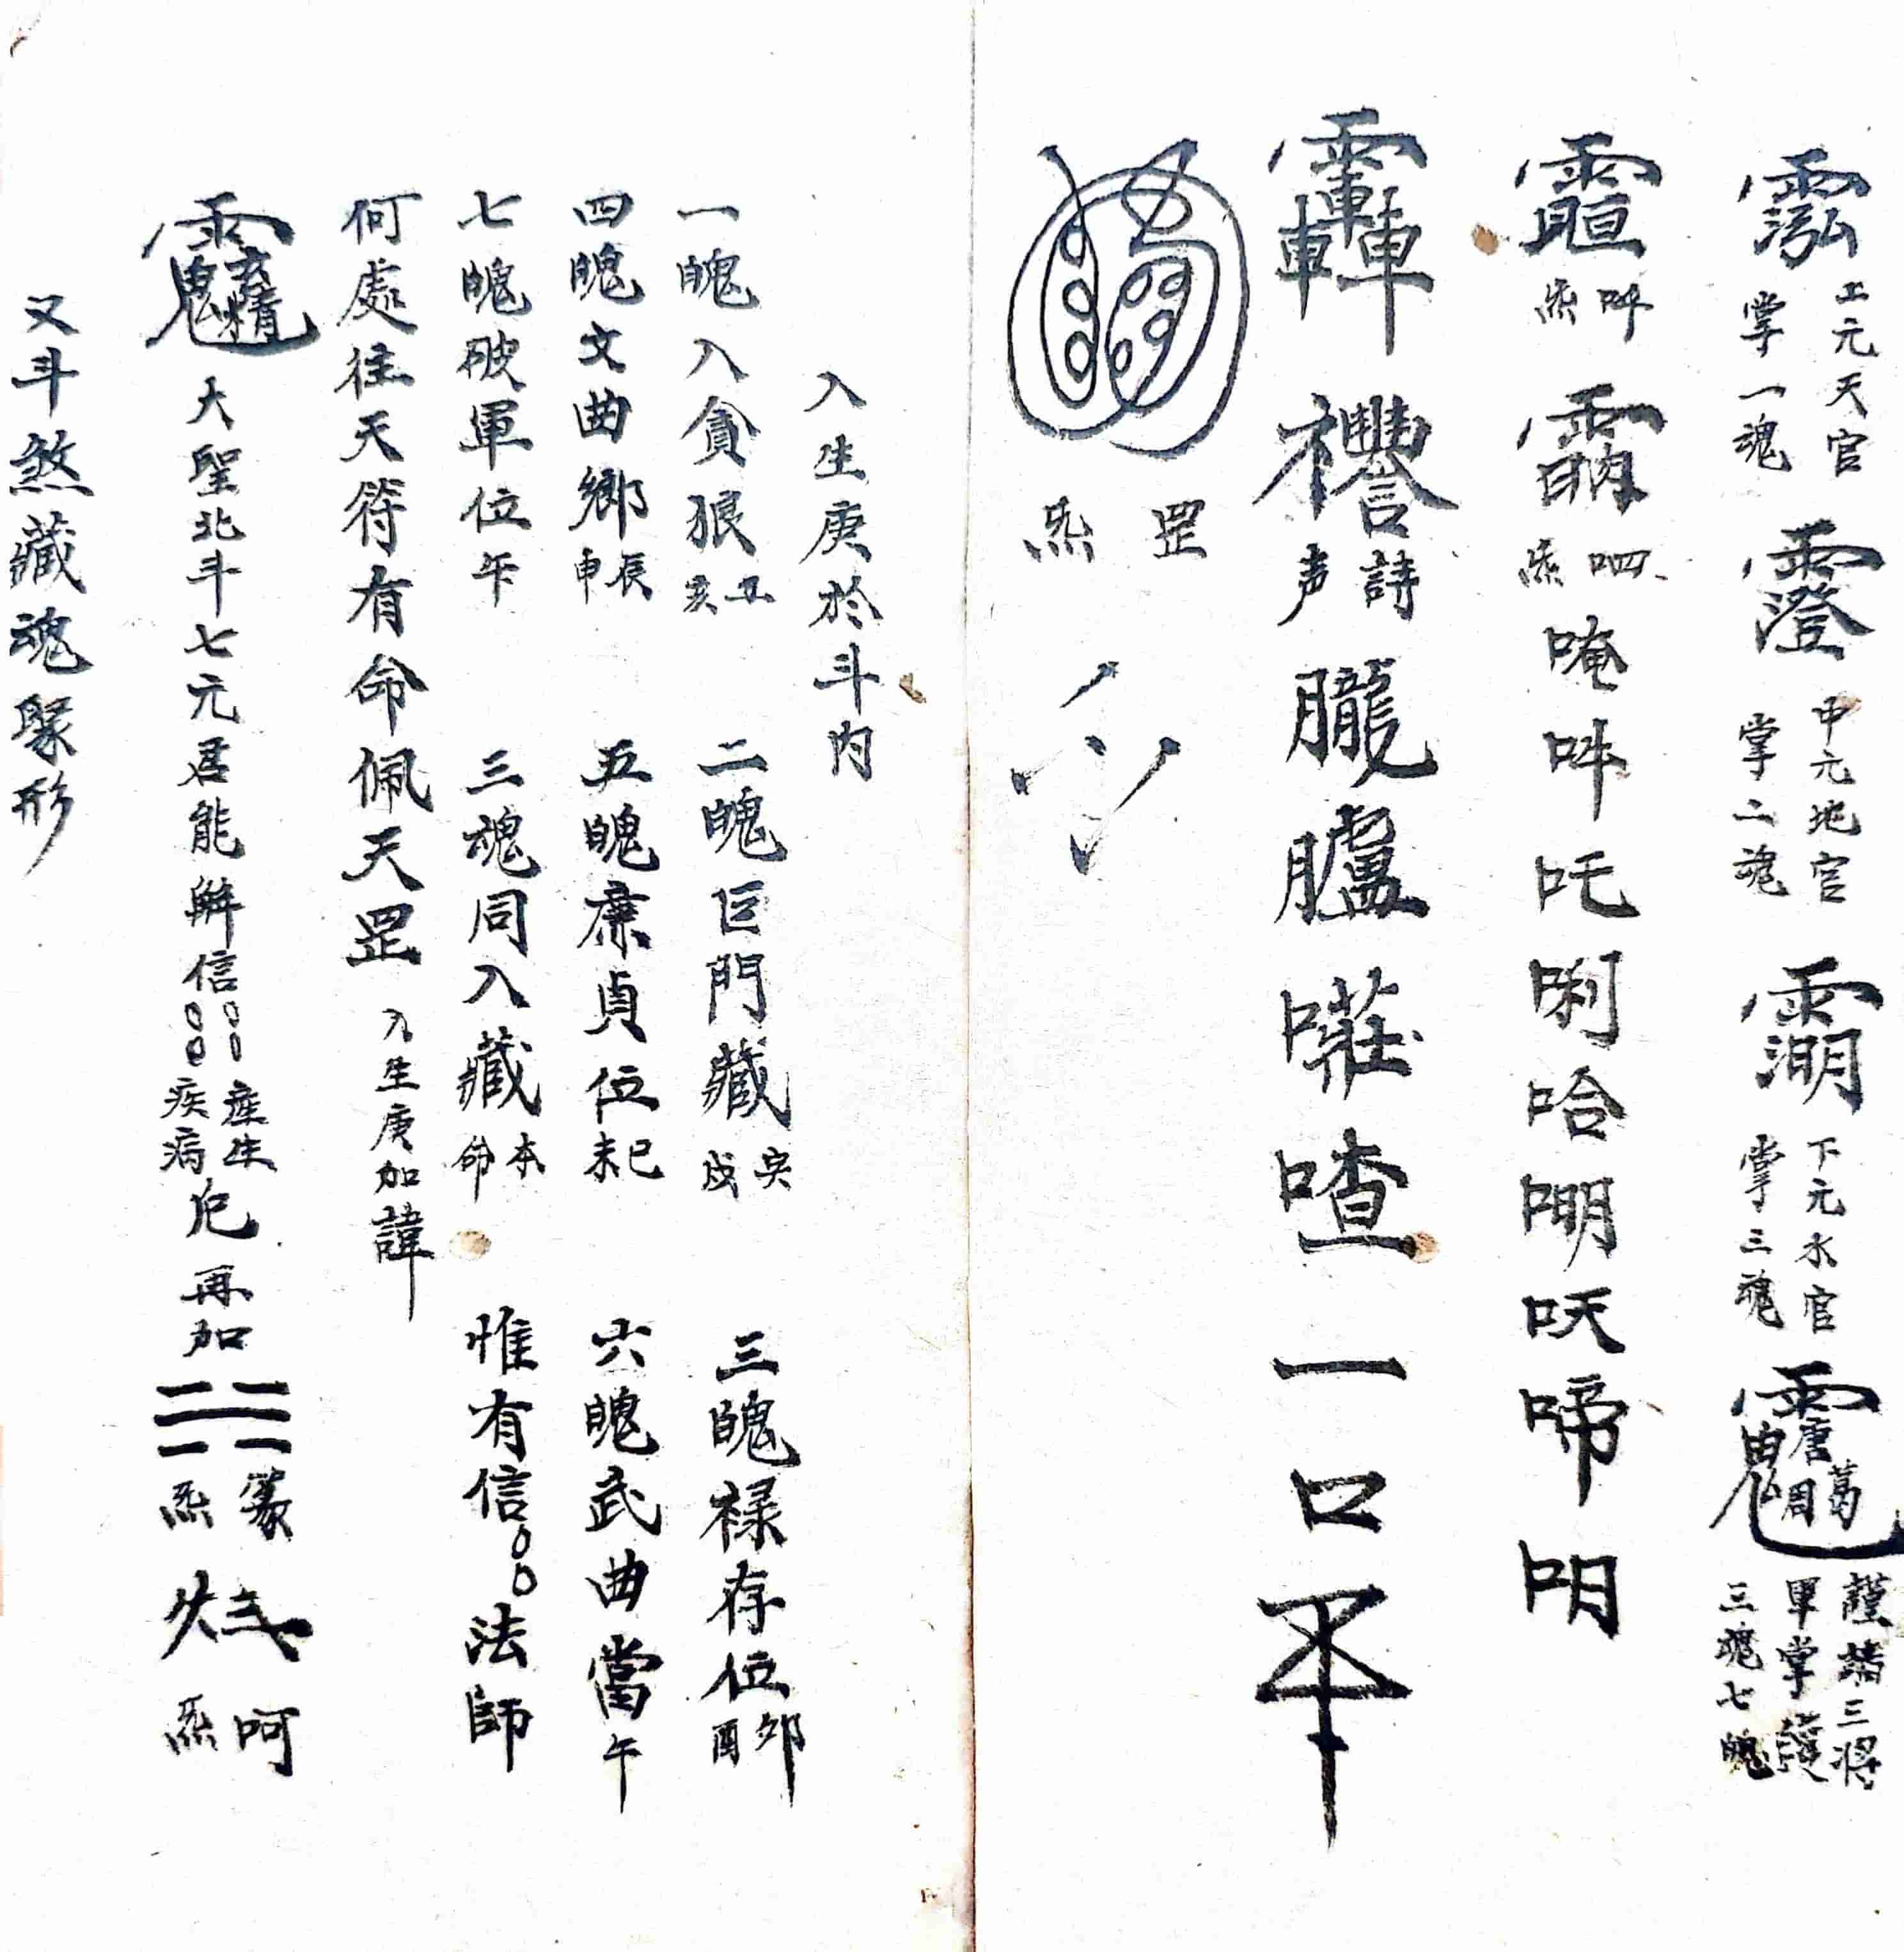 上元天官
掌一魂
中元地官
掌二魂
下元水官
掌三魂
護禱三將
軍掌護
三魂七魄
吽
炁
呬
炁
唵吽吒唎哈𠵇㕭啼明
詩
声
朧臚喳一口
罡
炁
入生庚於斗内
一魄入貪狼
丑
亥
二魄巨門藏
寅
戌
三魄禄存位
卯
酉
四魄文曲鄉
辰
申
五魄廉貞位
巳
未
六魄武曲當
午
七魄破軍位
午
三魂同入藏
本
命
惟有信
法師
何處往天符有命佩天罡
入生庚加諱
大聖北斗七元君能解信
産生
疾病
厄
再加
篆
炁
呵
炁
又斗煞藏魂聚形